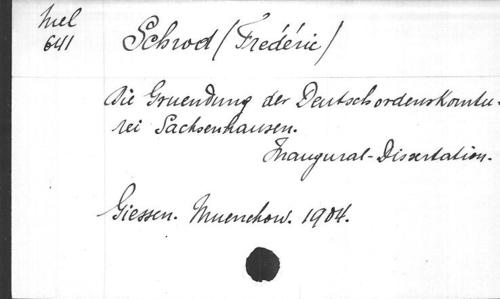 Mel
641
Schrod (Frédéric)
Die Gruendung der Deutschordenskomtu-
rei Sachsenhausen.
Inaugural-Dissertation.
Giessen. Muenchow. 1904.